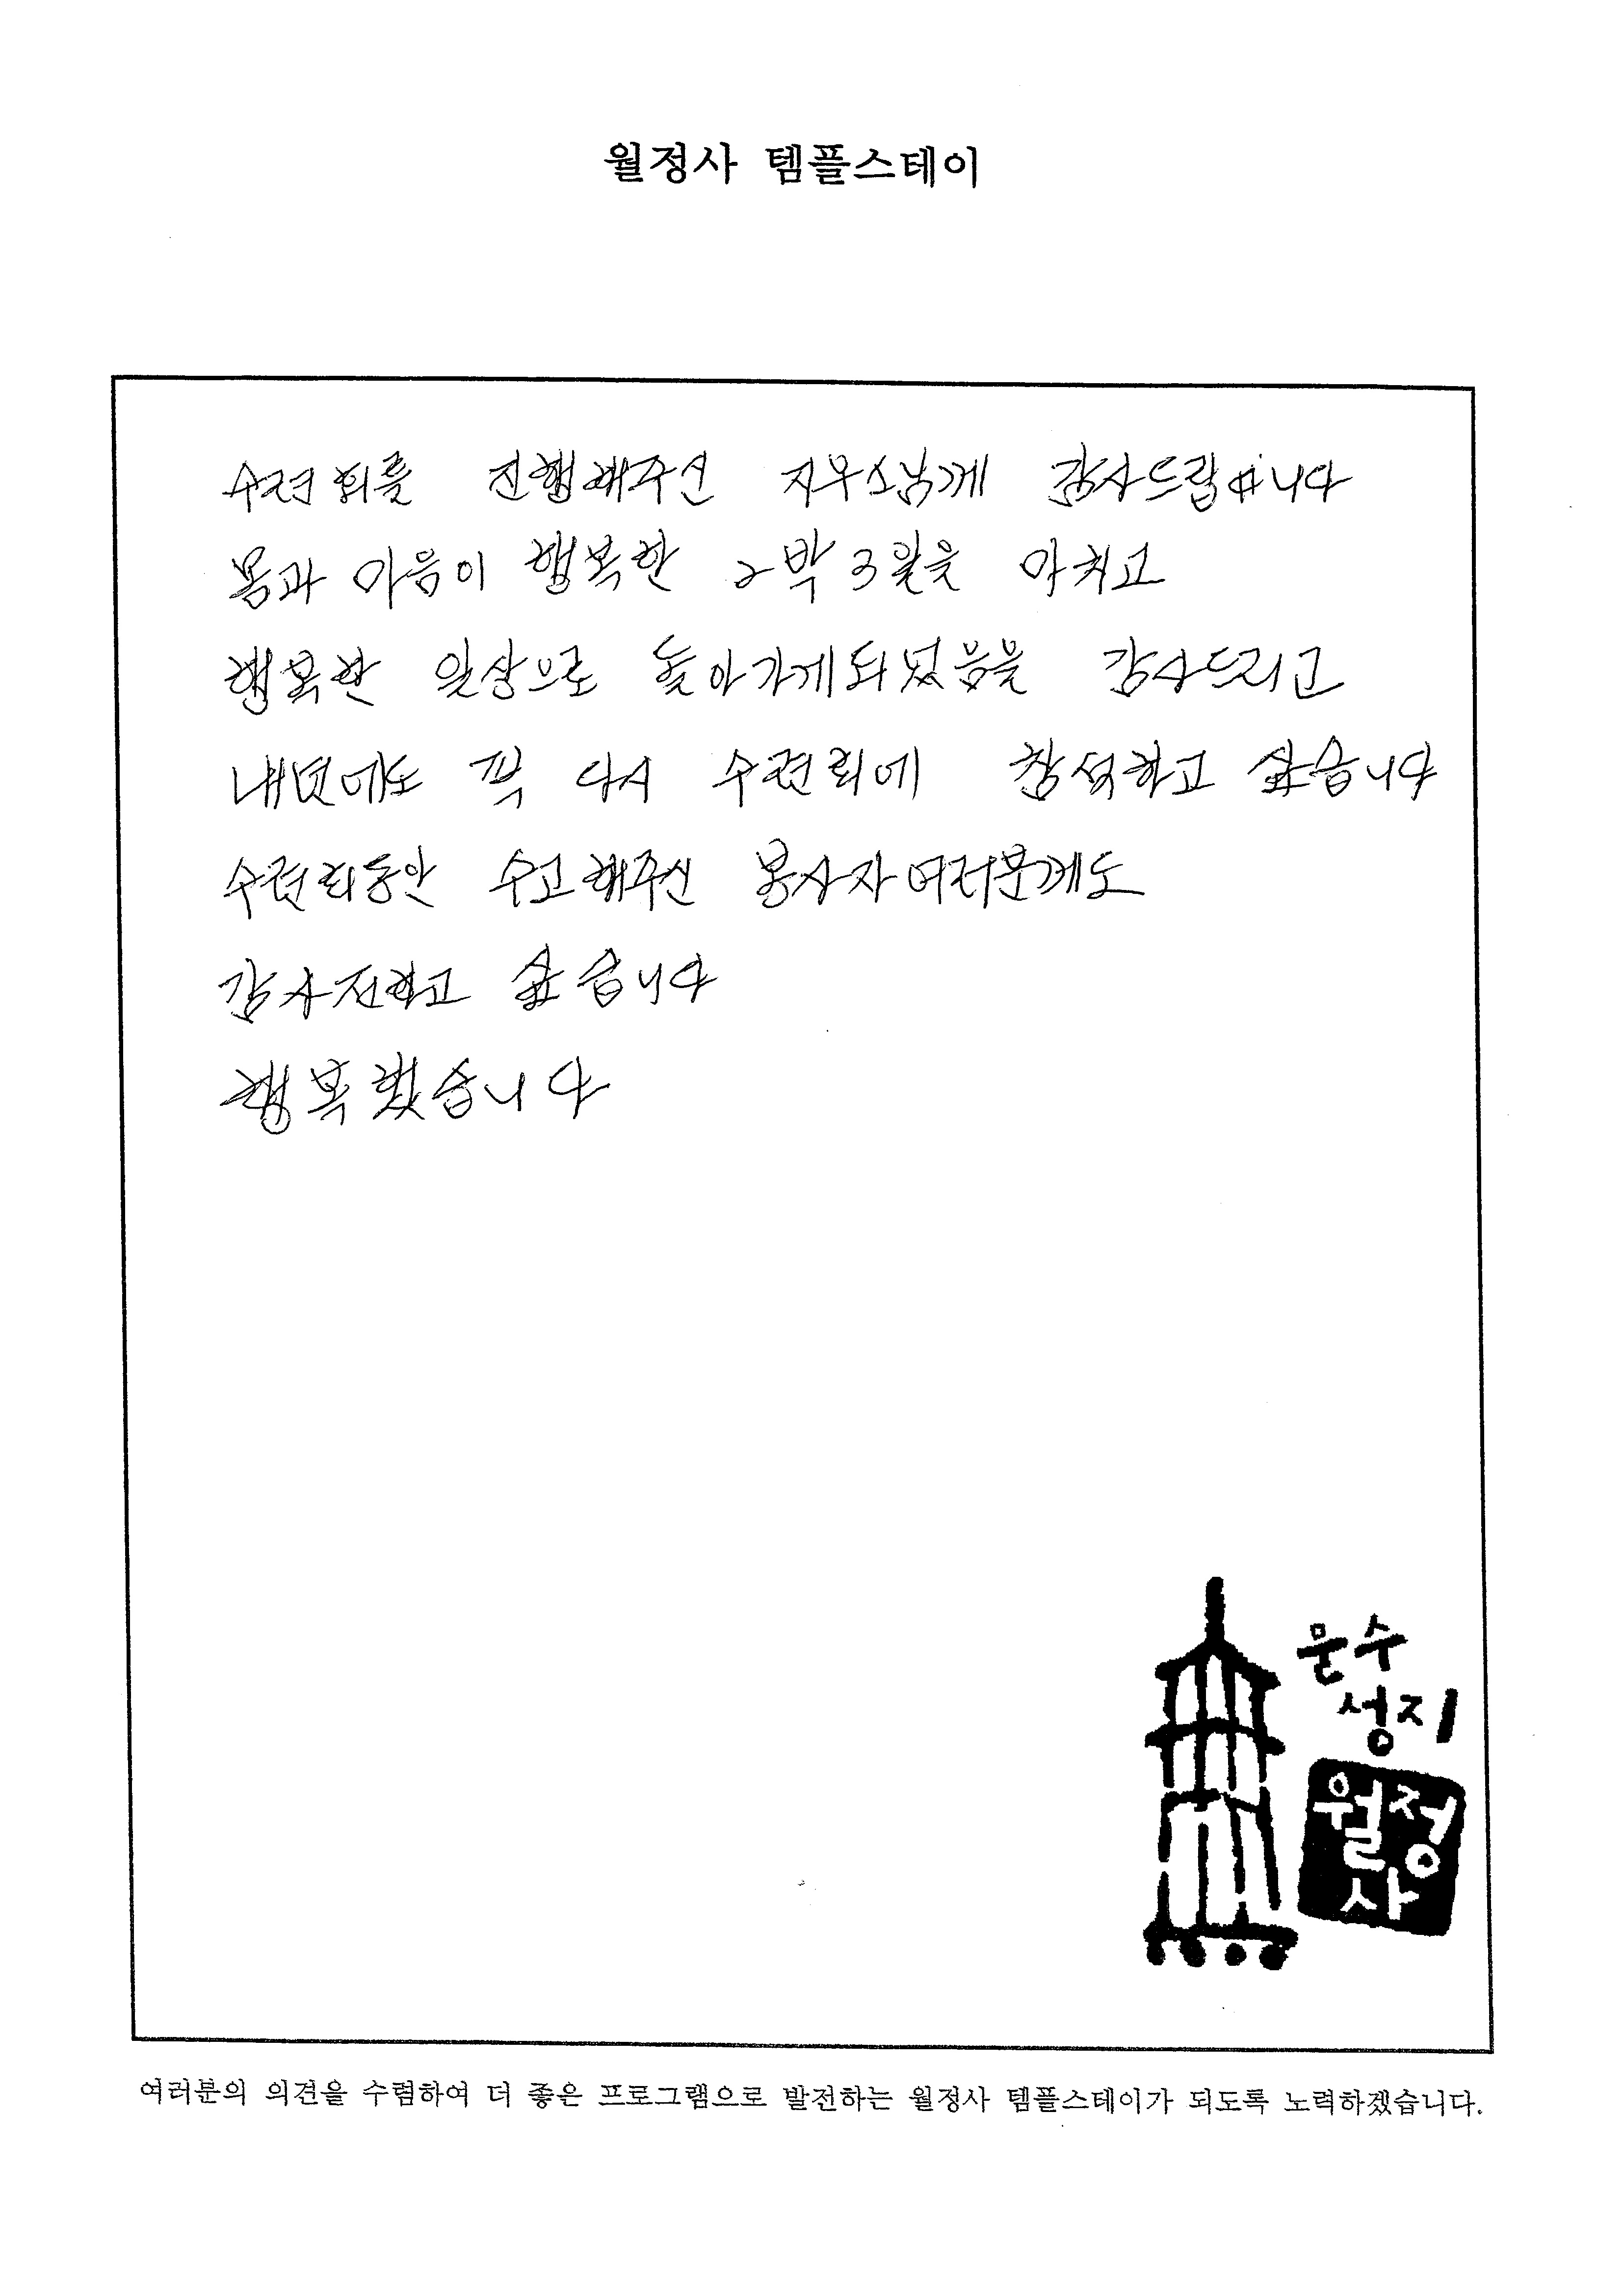 월정사 템플스테이
수련회를 진행해주신 지우스님께 감사드립니다
몸과 마음이 행복한 2박 3일을 마치고
행복한 일상으로 돌아가게되었음을 감사드리고
내년에도 꼭 다시 수련회에 참석하고 싶습니다
수련회동안 수고해주신 봉사자여러분께도
감사전하고 싶습니다
행복했습니다
문수
성지
월정
사
여러분의 의견을 수렴하여 더 좋은 프로그램으로 발전하는 월정사 템플스테이가 되도록 노력하겠습니다.